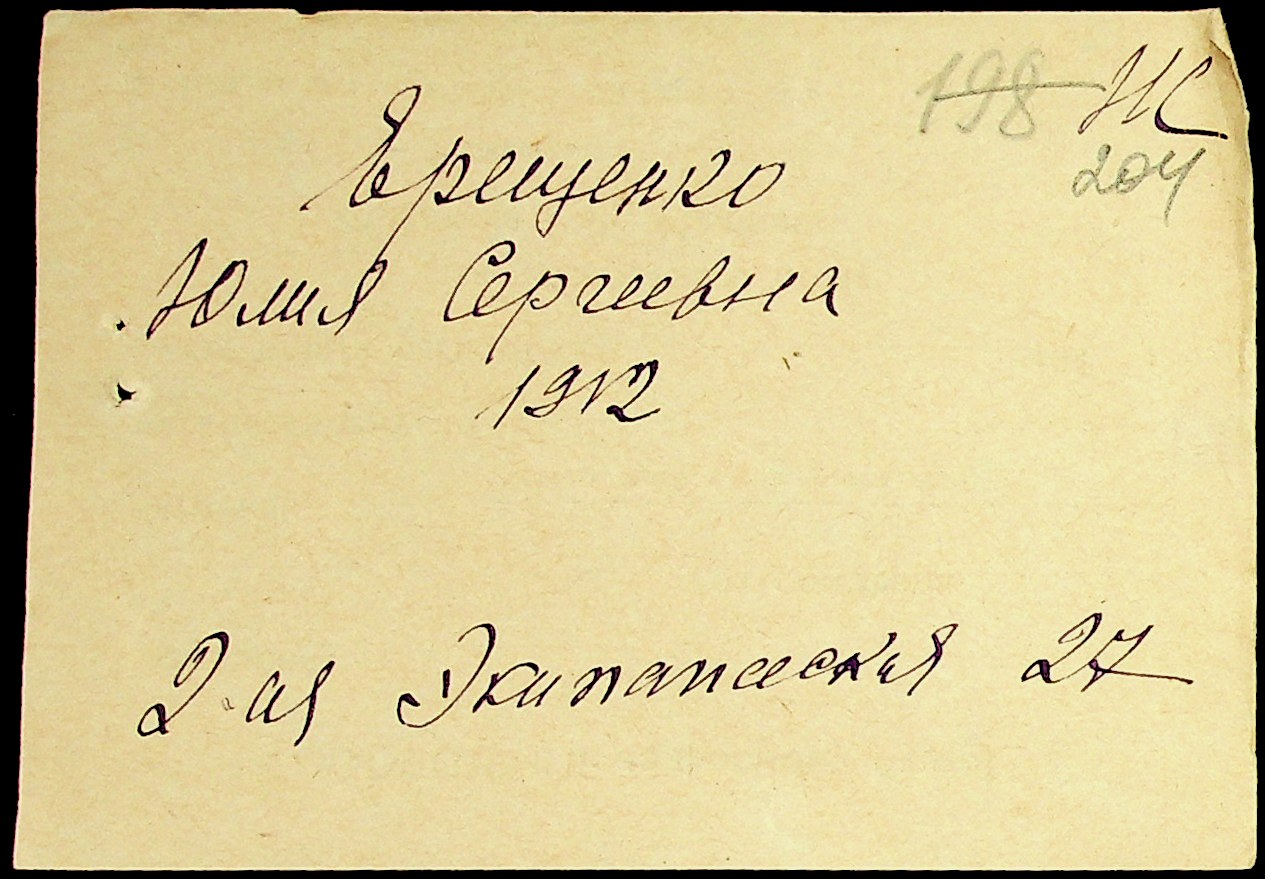 198 Ж
204
Ерещенко
Юлия Сергеевна
1912
2-ая Экипажеская 27